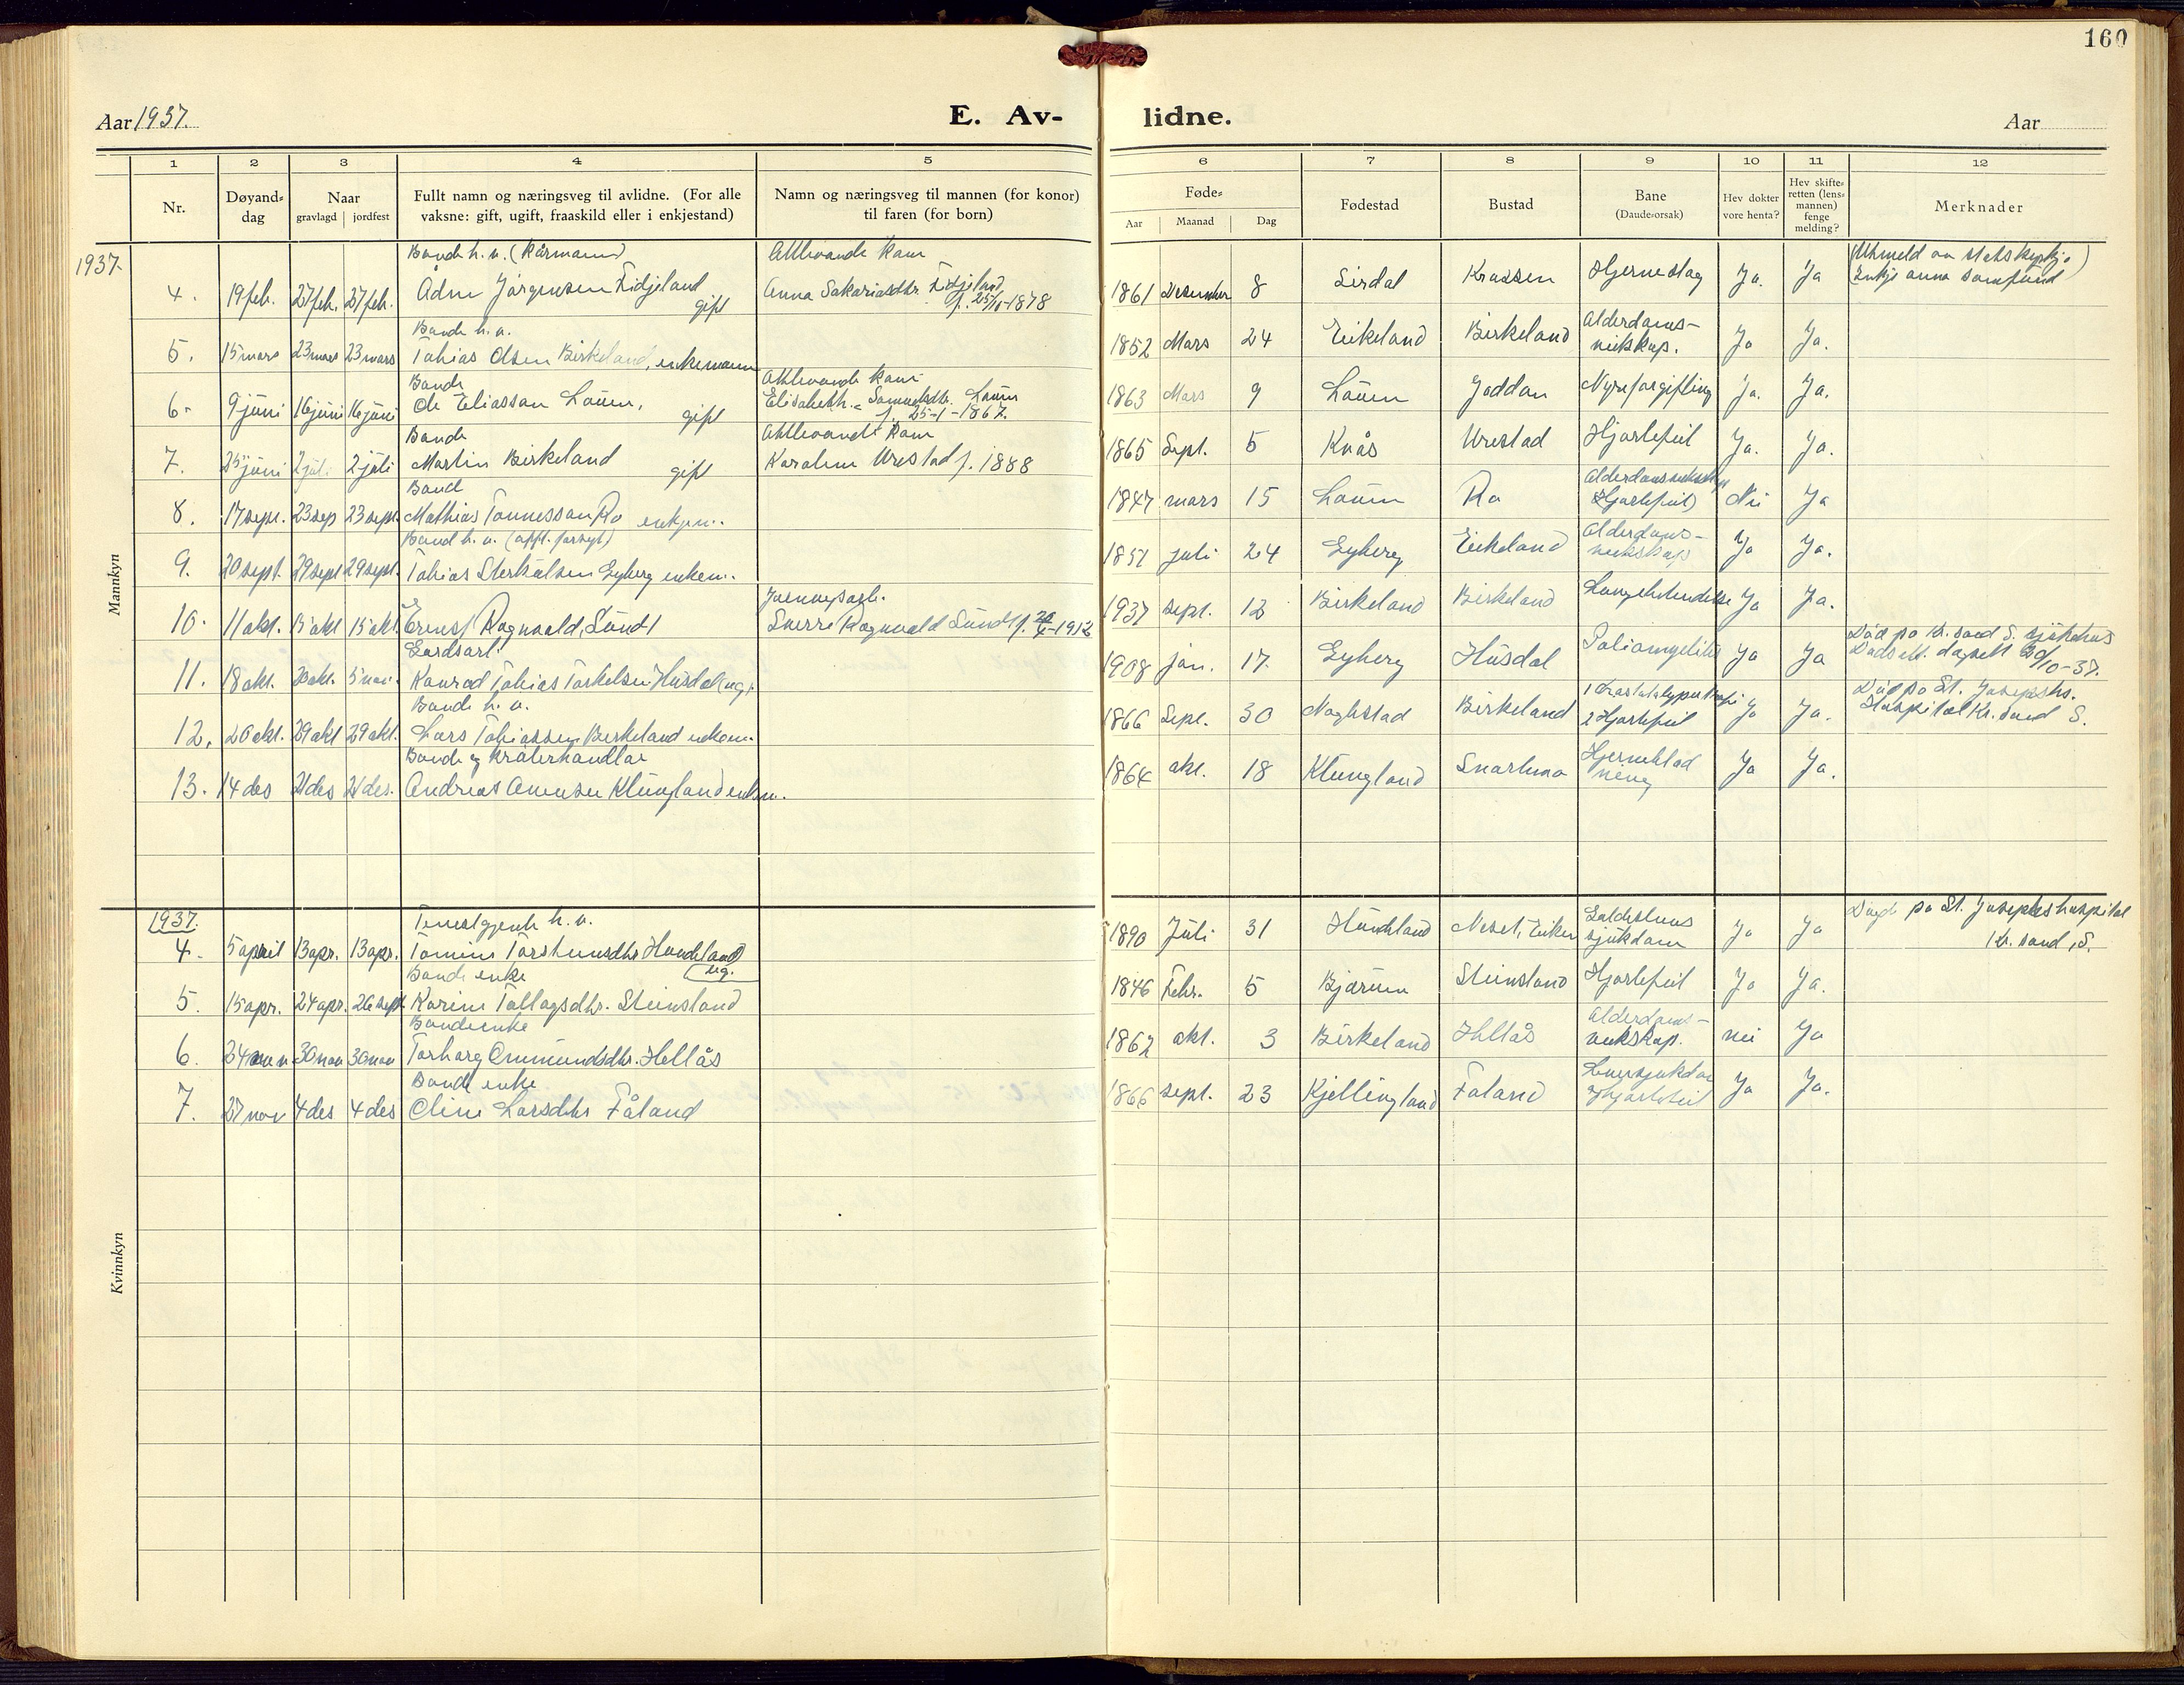 160
Aar 1937.
E. Av-
lidne.
Aar
1 2 3 4 5 6 7 8 9 10 11 12
Nr.
Døyand=
dag
Naar
gravlagd | jordfest
Fullt namn og næringsveg til avlidne. (For alle
vaksne: gift, ugift, fraaskild eller i enkjestand)
Namn og næringsveg til mannen (for konor)
til faren (for born)
Føde=
Aar Maanad Dag
Fødestad
Bustad
Bane
(Daude=orsak)
Hev dokter
vore henta?
Hev skifte=
retten (lens=
mannen)
fenge
melding?
Merknader
Mannkyn
1937.
Bonde h. v. (kårmann) Attlevande kone (Utmeld av statskyrkja)
4. 19 feb. 27 feb. 27 feb. Ådne Jörgensen Fidjeland gift Anna Sakariasdtr. Fidjeland 1861 Desember 8 Sirdal Hjerneslag Ja. Ja
f. 25/10-1878
Bonde h. v.
5. 15 mars 23 mars 23 mars Tobias Olsen Birkeland, enkemann 1852 Mars 24 Eikeland Birkeland Alderdoms-
veikskap. Ja Ja.
Bonde Attlevande kone
6. 9 juni 16 juni 16 juni Ole Eliasson Lauen, gift Elisabeth Samuelsdtr. Lauen 1863 Mars 9 Lauen Joddan Nyreforgifting Ja. Ja.
f. 25-1-1867.
Bonde Attlevande kone
7. 25 juni 2 juli 2 juli Martin Birkeland gift Karoline Urestad f. 1888 1865 Sept. 5 Kvås Urestad Hjartefeil Ja. Ja.
Bonde
8. 17 sept. 23 sep 23 sept. Mathias Tønnesson Ro enkjem. 1847 mars 15 Lauen Ro Alderdomsveikskap
Hjartefeil) Nei Ja
Bonde h. v.
9. 20 sept. 29 sept 29 sept. Tobias Eyberg enkem. 1851 juli 24 Eyberg Eikeland Alderdoms-
veikskap Ja Ja.
10. 11 okt. 15 okt 15 okt. Ernest Ragnvald Sund Sverre Ragnvald Sund f. 1912 1937 sept. 12 Birkeland Birkeland Ja Ja.
Gardsarb.
11. 18 okt. 5 nov. Konrad Tobias Torkelsen Husdal ug. 1908 jan. 17. Eyberg Husdal Poliomyelitis Ja Ja Död på Kr. sand S. sjukehus
30/10-37.
Bonde h. v.
12. 20 okt. 29 okt 29 okt. Lars Tobiassen Birkeland enkem. 1866 Sept. 30 Birkeland 1
2 Hjartefeil Ja Ja. Död på St. Josephs.
Hospital Kr. sand S.
Bonde og kråterhandlar
13. 14 des 21 des 21 des. Andreas Klungland enkem. 1864 okt. 18 Klungland Snartmo Hjerneblöd
ning Ja Ja.
Kvinnkyn
1937.
Tenestgjente h. v.
4. 5 april 13 apr. 13 apr. Tomine Torsteinsdtr Hundeland
ug. 1890 Juli 31 Hundeland Neset, Eiken
sjukdom Ja Ja Döyde på St. Josephs hospital
Kr. sand, S.
Bonde enke
5. 15 apr. 24 apr. 26 sept. Karine Tollagsdtr. Steinsland 1846 Febr. 5 Bjærum Steinsland Hjartefeil Ja Ja.
Bondeenke
6. 24 nov 30 nov 30 nov Torborg Ommundsdtr. Hellås 1862 okt. 3 Birkeland Hellås Alderdoms-
veikskap. nei Ja
Bonde enke
7. 27 nov 4 des 4 des Oline Larsdtr Fåland 1866 sept. 23 Kjellingland Faland Leversjukdom
Hjartefeil Ja Ja.